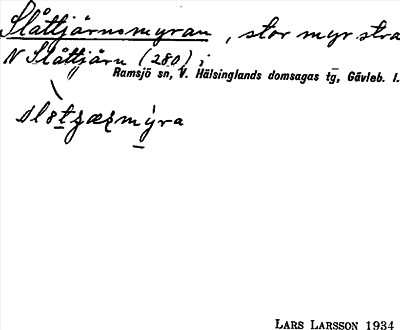 Slåttjärnsmyran, stor myr stra
N Slåttjärn (280) i
Ramsjö sn, V. Hälsinglands domsagas tg, Gävleb. l.
LARS LARSSON 1934